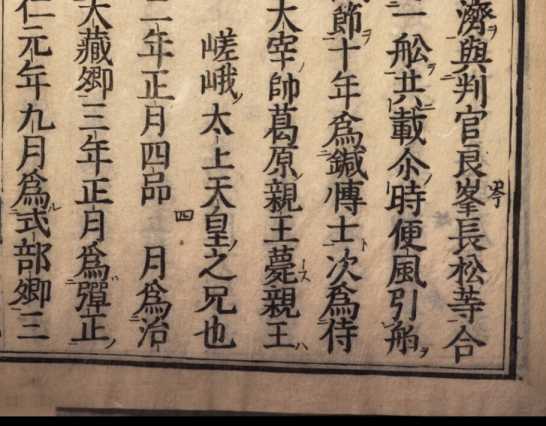 濟與判官良峯長松等合
一舩共載尒時便風引舩
節十年為鍼博士次為侍
大宰帥葛原親王薨親王
嵯峨太上天皇之兄也
二年正月四品 四 月為治
大藏卿三年正月為彈正
仁元年九月為式部卿三